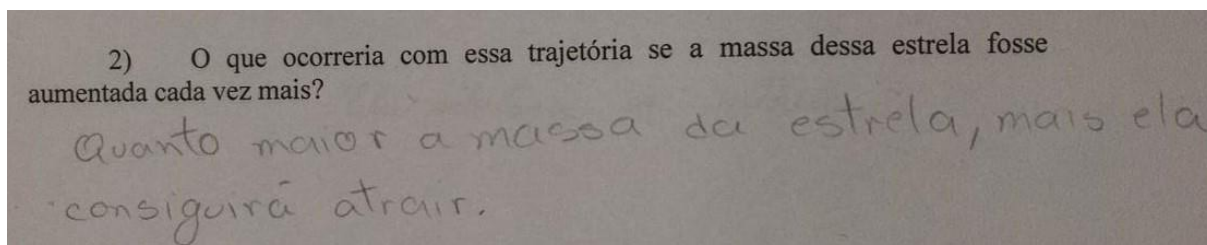 2) O que ocorreria com essa trajetória se a massa dessa estrela fosse
aumentada cada vez mais?
Quanto maior a massa da estrela, mais ela
consiguirá atrair.